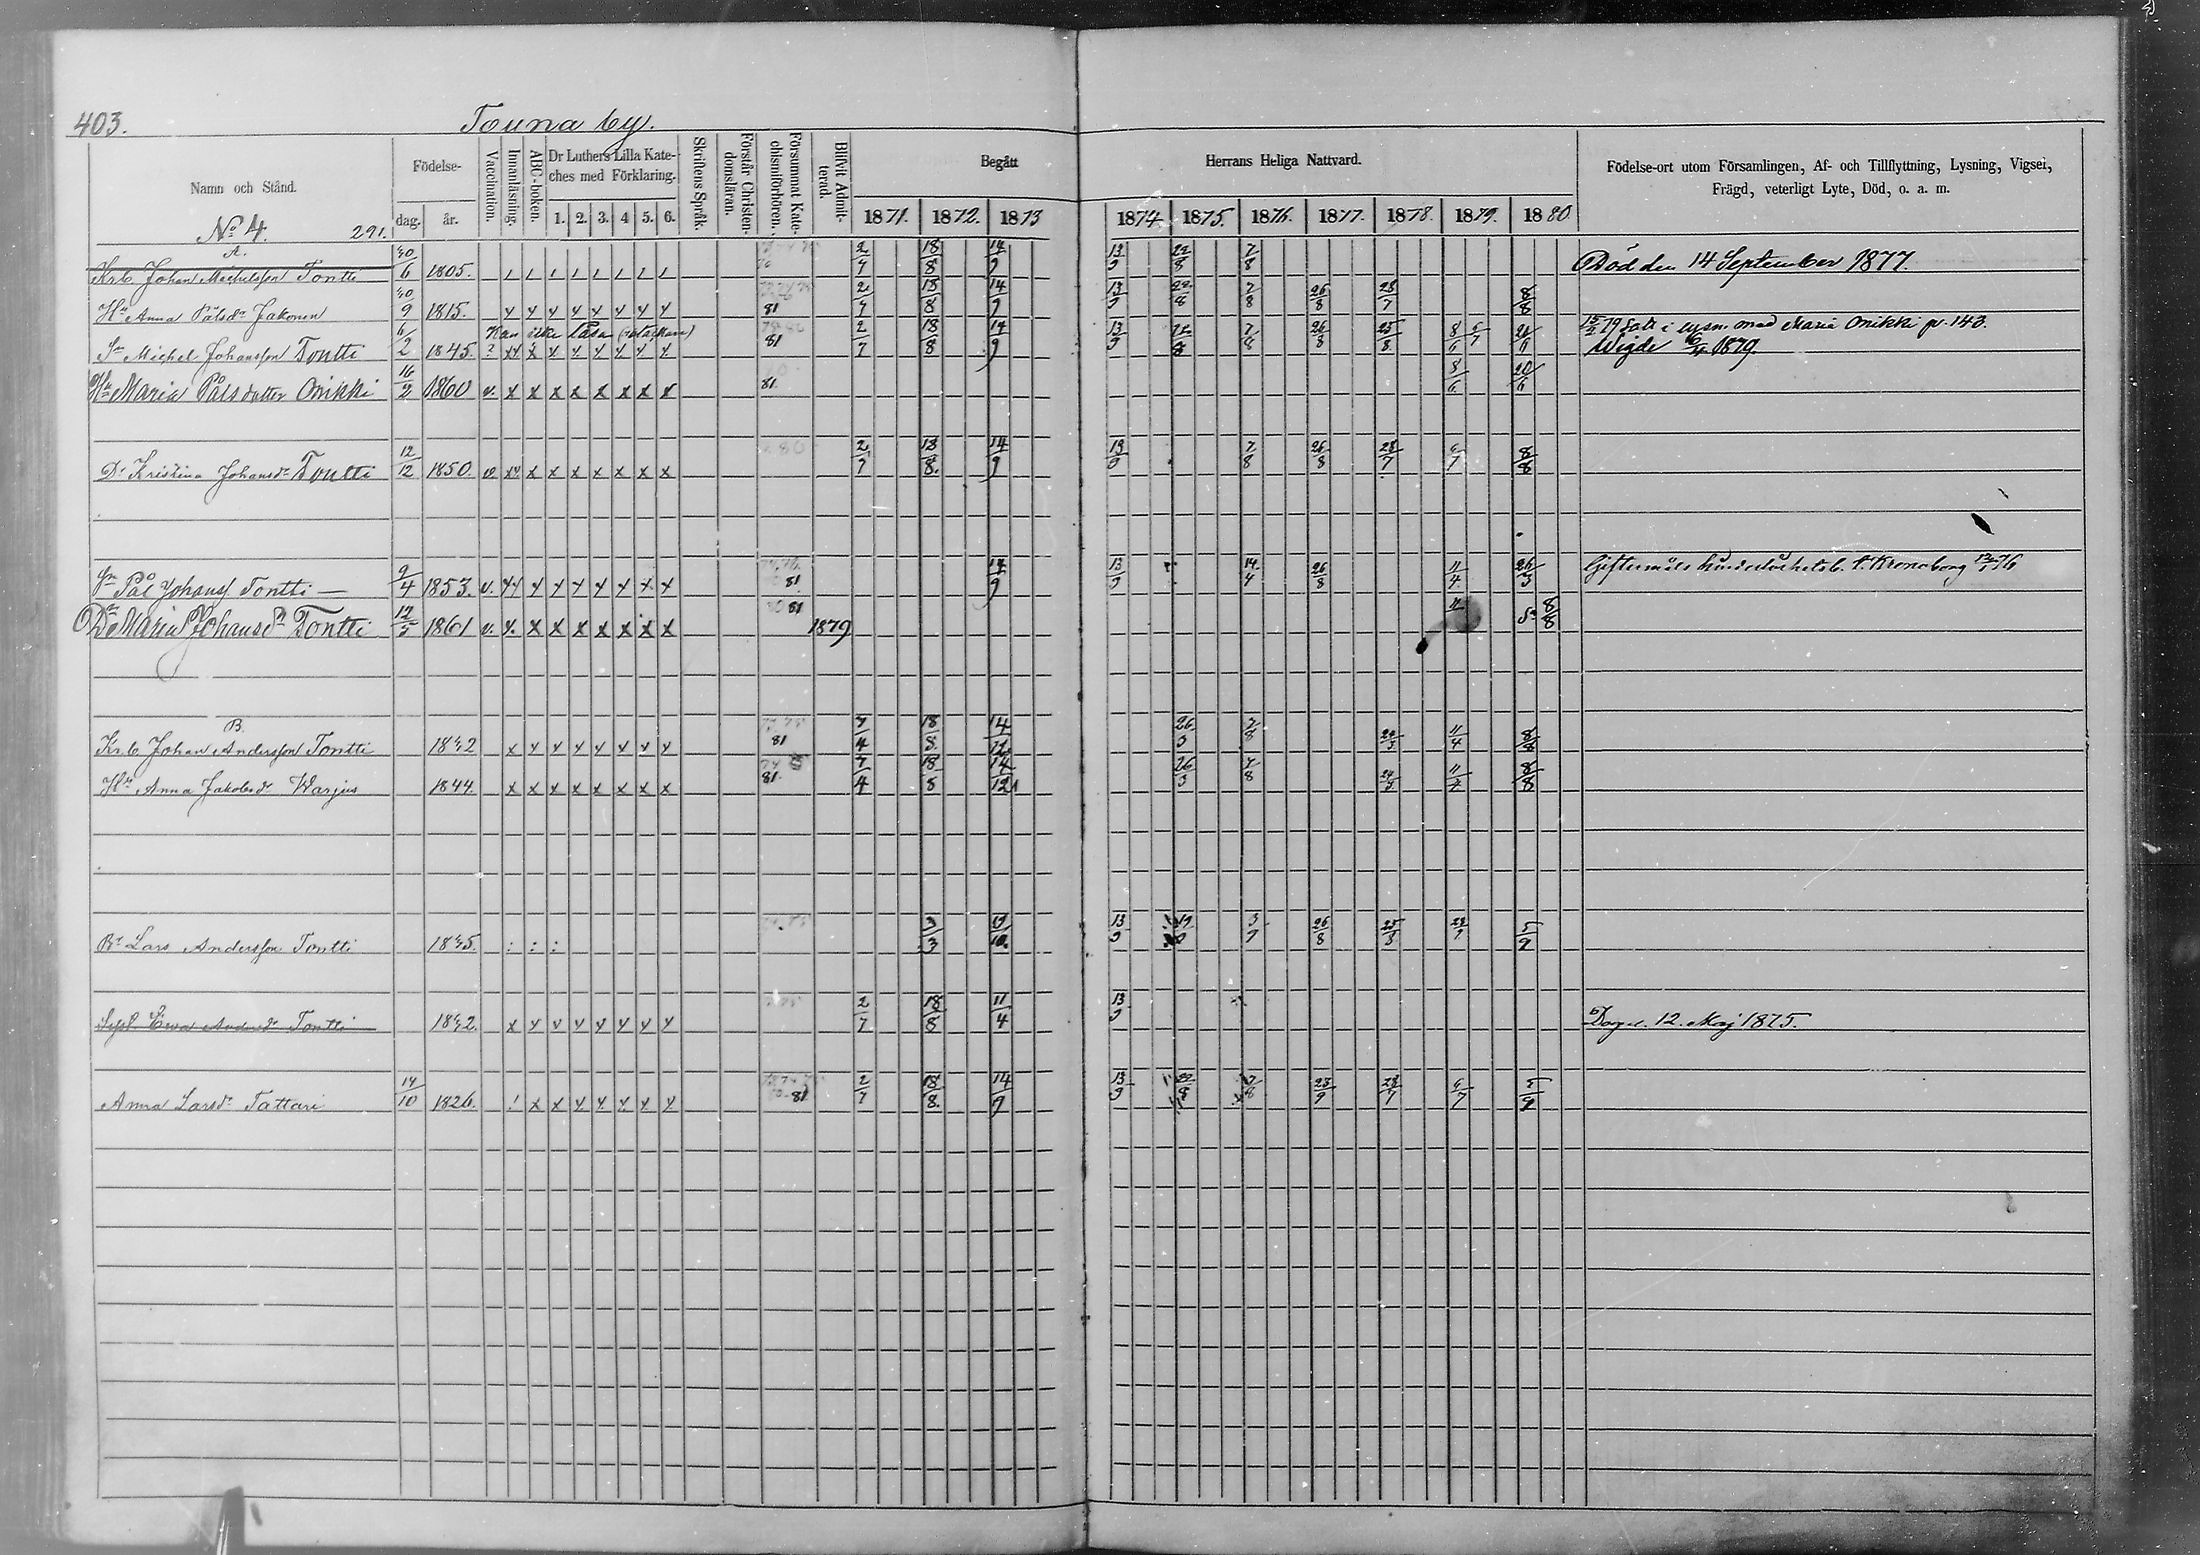 403.
Touna by.
Namn och Stånd.
Födelse-
dag.
år.
Vaccination.
Innanläsning.
ABC-boken.
Dr Luthers Lilla Kate-
ches med Förklaring.
1. 2. 3. 4 5. 6.
Skriftens Språk.
Förstår Christen-
domsläran.
Försummat Kate-
chismiförhören.
Blifvit Admit-
terad.
Begått
Herrans Heliga Nattvard.
1871. 1872. 1873
1874 1875. 1876. 1877. 1878. 1879. 1880
Födelse-ort utom Församlingen, Af- och Tillflyttning, Lysning, Vigsel,
Frägd, veterligt Lyte, Död, o. a. m.
No 4. 291.
A.
Krb. Johan Michelsson Tontti 30/6 1805. 2/7 18/8 14/9 13/9 7/8 Död den 14 September 1877.
Hu Anna Pålsdr Jakonen 9 1815. 81 2/7 18/8 14/9 13/9 7/8 26/8 28/7 8/8
Kan icke läsa
Sn Michel Johansson Tontti 6/2 1845. ? 81 2/7 18/8 14/9 13/9 7/8 26/8 25/8 8/6 i lysn. med Maria Onikki p. 143.
Wigde 6/4 1879.
Hu Maria Pålsdotter Onikki 16/2 1860 v. x x x x x x x x 81. 8/6 20/6
Dr Kristina Johansdr Tontti 12/12 1850. v x x x x x x x 80 2/7 18/8. 14/9 13/9 7/8 26/8 28/7 6/7 8/8
Sn Pål Johanss Tontti — 9/4 1853. v. 81 14/9 13/9 14/4 26/8 11/4 Giftermåls hinderlöshetsb. t. Kronoborg
Dr Maria Johansdr Tontti 12/5 1861 v. x. x x x x x x x 81 1879 11 8/8
B.
Krb. Johan Andersson Tontti 1842 81 7/4 18/8 14/12 26/3 7/8 11/4 8/8
Hu Anna Jakobsdr Warjus 1844. x x x x x x x x 81. 7/4 18/8 14/12 26/3 7/8 11/4 8/8
Br Lars Andersson Tontti 1845. 3/3 13/9 26/8 25/8 5/9
Syst. Ewa Andersdr Tontti 1842. 2/7 18/8 11/4 13/9 12. Maj 1875.
Anna Larsdr Tattari 14/10 1826. 81 2/7 18/8. 14/9 13/9 7/8 28/7 6/7 5/9